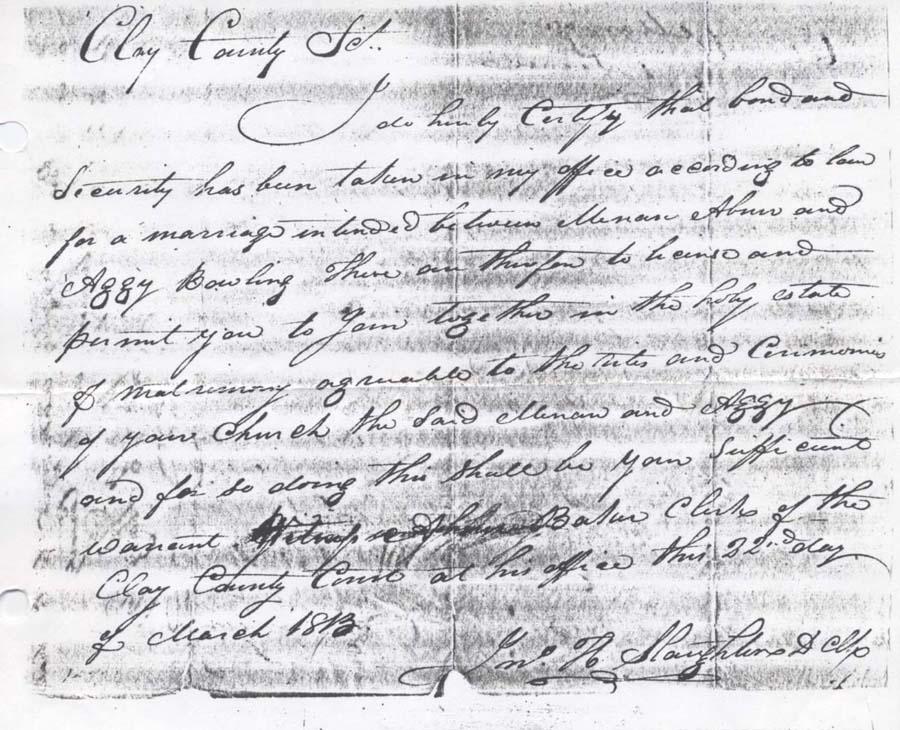 Clay County Sct.
I do herely Certify that bond and
Security has been taken in my office according to law
for a marriage intended between Menan Abner and
Aggy Bowling These are therefore to license and
permit you to Join together in the holy estate
of matrimony agreeable to the rites and Ceremonies
of your Church the Said Menan and Aggy
and for so doing this shall be your Sufficient
warrant Baker Clerk of the
Clay County Court at his office this 22nd day
of March 1813
Jno. H Slaughter D Clk